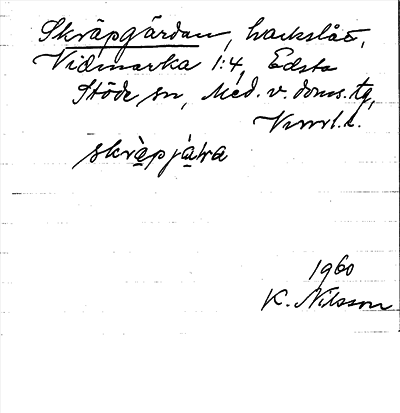 Skräpgärdan, hackslåt,
Vidmarka 1:4, Edsta
Stöde sn, Med. v. doms. tg,
Vnrrl. l.
skràpjàɽa
1960
K. Nilsson